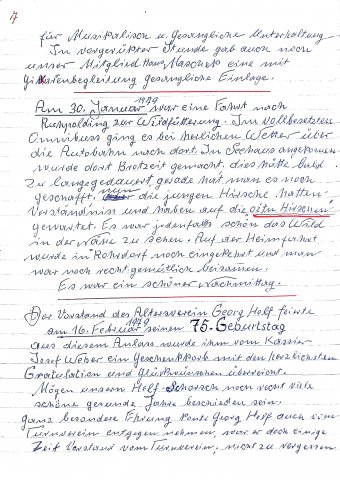 7
für Musikalisch u. Gesangliche Unterhaltung
In vorgerückter Stunde gab auch noch
unser Mitglied Hans Maschek eine mit
Gitarrenbegleitung gesangliche Einlage.
Am 30. Januar 1979 war eine Fahrt nach
Ruhpolding zur Wildfütterung. Im vollbesetzten
Omnibuss ging es bei herlichen Wetter über
die Autobahn nach dort. In Seehaus angekommen
wurde dort Brotzeit gemacht, dies hätte bald
zu lange gedauert, gerade hat man es noch
geschafft. nun die jungen Hirsche hatten
Verständniss und haben auf die alten Hirschen
gewartet. Es war jedenfalls schön das Wild
in der Nähe zu sehen. Auf der Heimfahrt
wurde in Rohrdorf noch eingekehrt und man
war noch recht gemütlich beisammen.
Es war ein schöner Nachmittag.
Der Vorstand des Altersverein Georg Helf feierte
am 16. Februar 1979 seinen 75. Geburtstag
aus diesem Anlass wurde ihm vom Kassier
Josef Weber ein Geschenkkorb mit den herzlichsten
Gratulation und Glückwünschen überreicht.
Mögen unserm Helf Schorsch noch recht viele
schöne gesunde Jahre beschieden sein.
Ganz besondere Ehrung konte Georg Helf auch vom
Turnverein entgegen nehmen, war er doch einige
Zeit Vorstand vom Turnverein, nicht zu vergessen